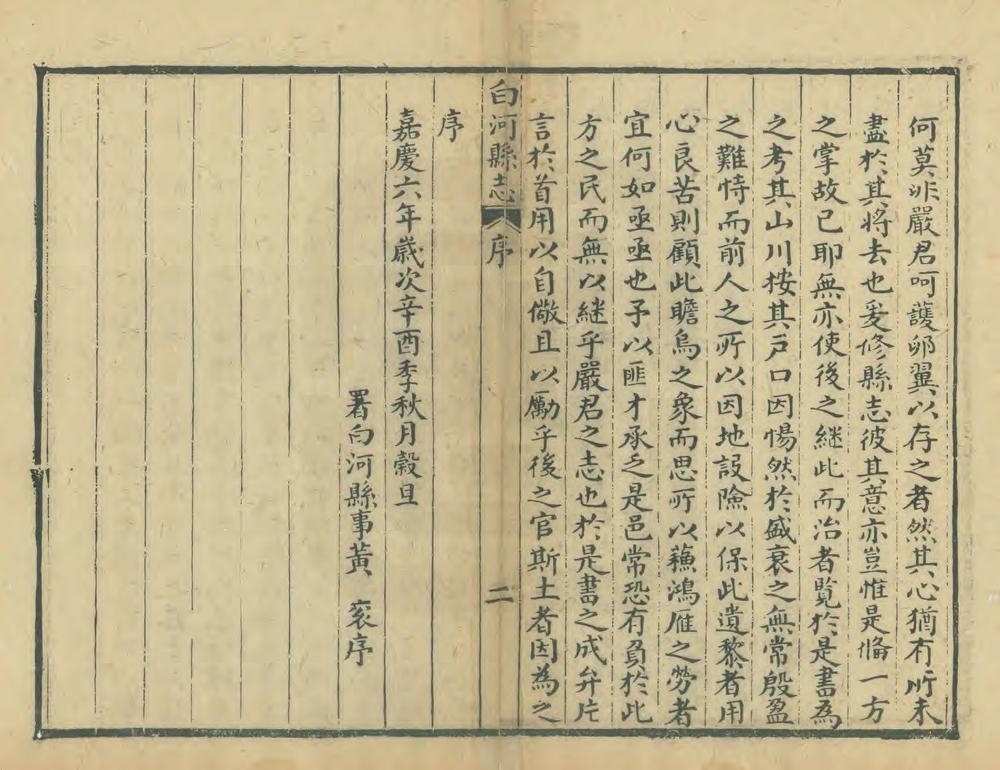 何莫非嚴君呵護卵翼以存之者然其心猶有所未
盡於其將去也爰修縣志彼其意亦豈惟是備一方
之掌故已耶無亦使後之継此而治者覽於是書為
之考其山川按其戸口因惕然於盛衰之無常殷盈
之難恃而前人之所以因地設險以保此遺黎者用
心良苦則顧此瞻烏之象而思所以蘓鴻雁之勞者
宜何如亟亟也予以匪才承乏是邑常恐有負於此
方之民而無以継乎嚴君之志也於是書之成弁片
言於首用以自儆且以勵乎後之官斯土者因為之
白河縣志 序 二
序
嘉慶六年歲次辛酉季秋月穀旦
署白河縣事黃 衮序